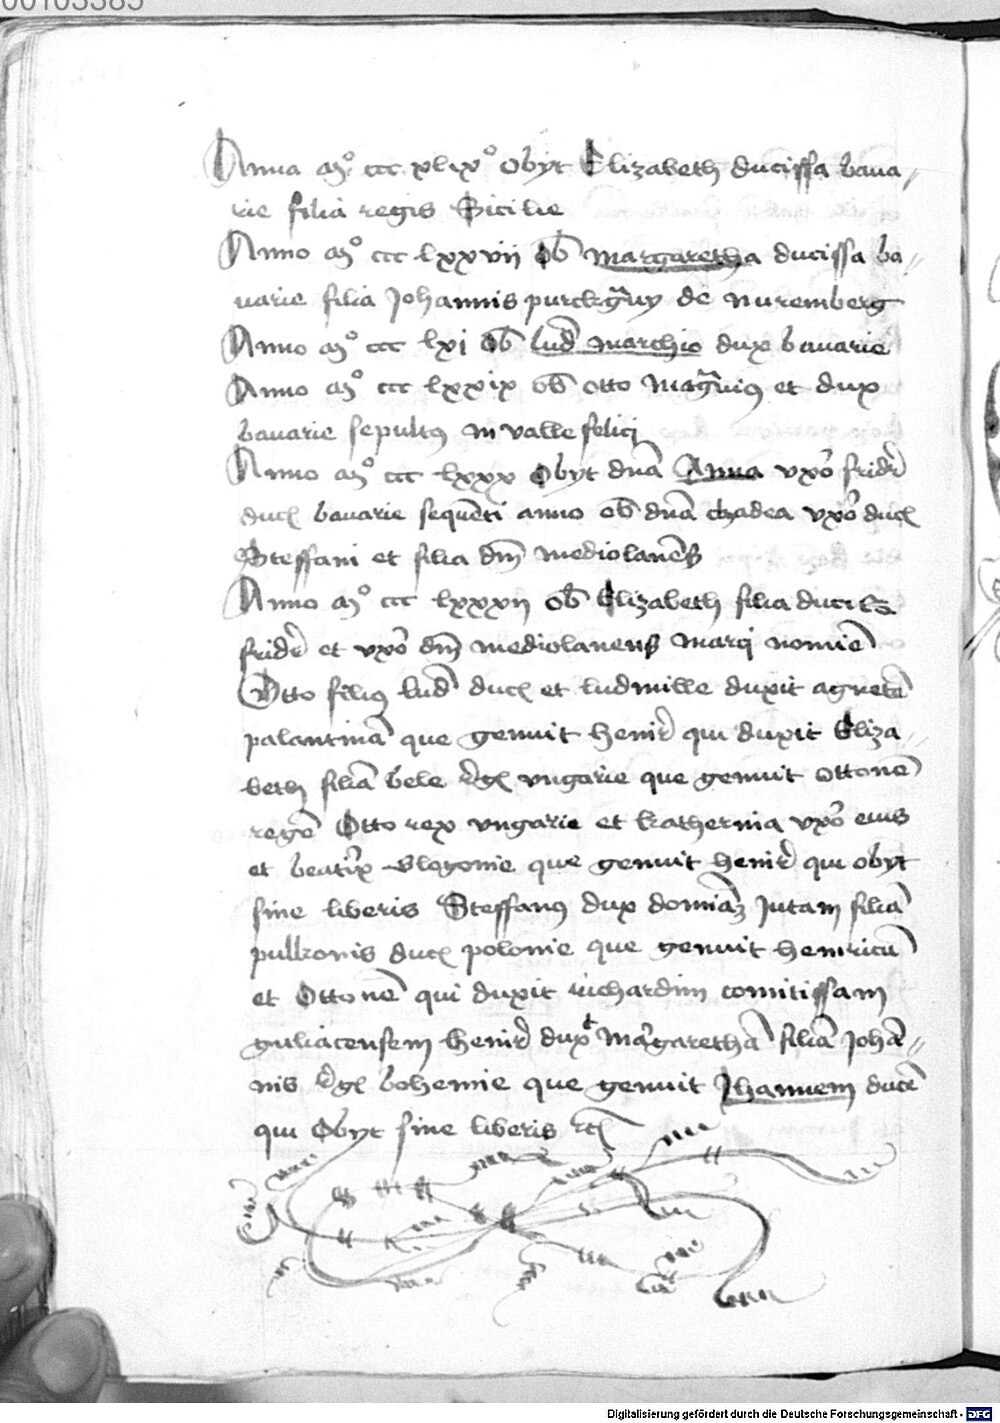 00103385
Anna mº ccc xlixº obyt Elizabeth ducissa bava
rie filia regis Sicilie
Anno mº ccc lxxvii ob margaretha ducissa ba
varie filia Johannis purckgravy de nuremberg
Anno mº ccc lxi ob lud marchio dux bavarie
Anno mº ccc lxxix ob otto et dux
bavarie sepultus in valle felici
Anno mº ccc lxxx obyt dna Anna vxor frider
duc bavarie sequenti anno ob dna thadea vxor duc
Steffani et filia dni mediolanens
Anno mº ccc lxxxii ob Elizabeth filia ducis
frider et vxor dni mediolanens marci nomine
Otto filius lud duc et ludmille duxit agnete
palantina que genuit henir qui duxit Eliza
beth filia bele reg vngarie que genuit ottone
rege Otto rex vngarie et katherina vxor eius
et beatrix Glogonie que genuit henir qui obyt
sine liberis Steffanus dux Jutam filia
pulkonis duc polonie que genuit henricu
et Ottone qui duxit richardim comitissam
guliacensem henir duxt margaretha filia Joha
nis reg bohemie que genuit Jhannem duce
qui obyt sine liberis etc
Digitalisierung gefördert durch die Deutsche Forschungsgemeinschaft - DFG